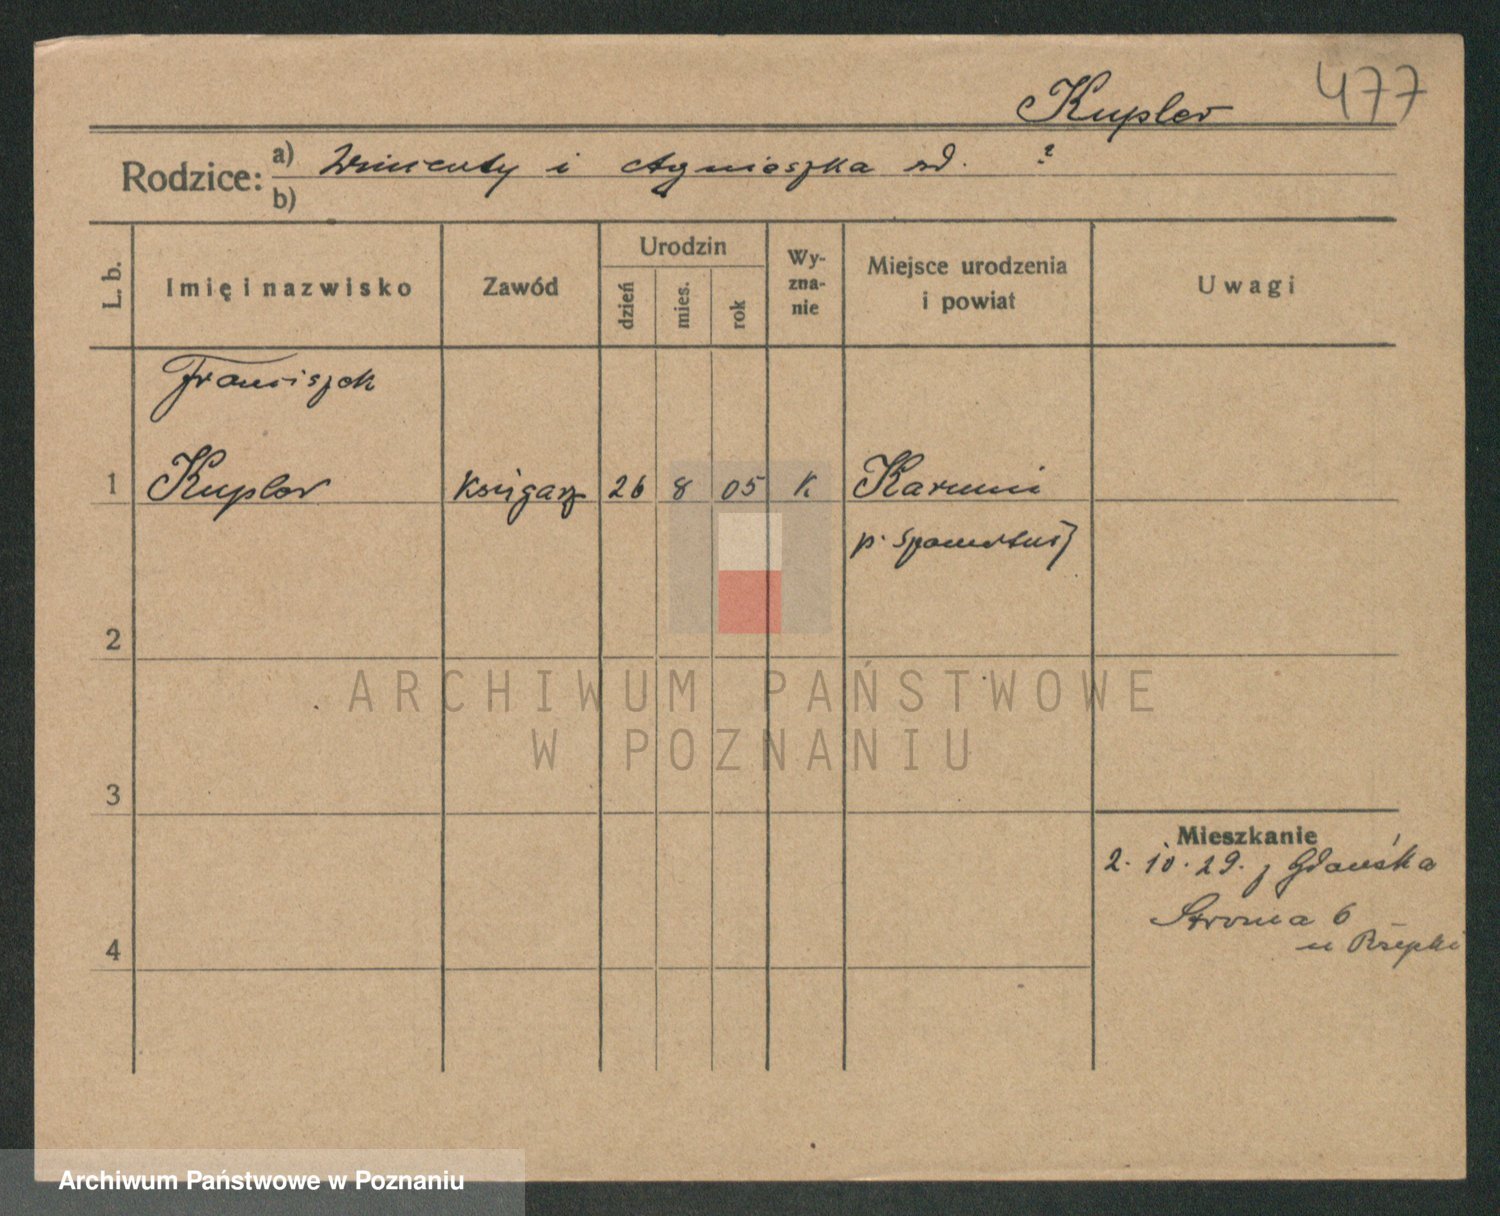 Kupler 477
Rodzice: a) Wincenty i Agnieszka zd. ?
b)
L. b.
Imię i nazwisko
Zawód
Urodzin
dzień
mies.
rok
Wy-
zna-
nie
Miejsce urodzenia
i powiat
Uwagi
Franciszek
1 Kupler księgarz 26 8 05 K Karmin
p.
2
3
4
Mieszkanie
2. 10. 29. z Gdańska
6
u Rzepki
ARCHIWUM PAŃSTWOWE
W POZNANIU
Archiwum Państwowe w Poznaniu